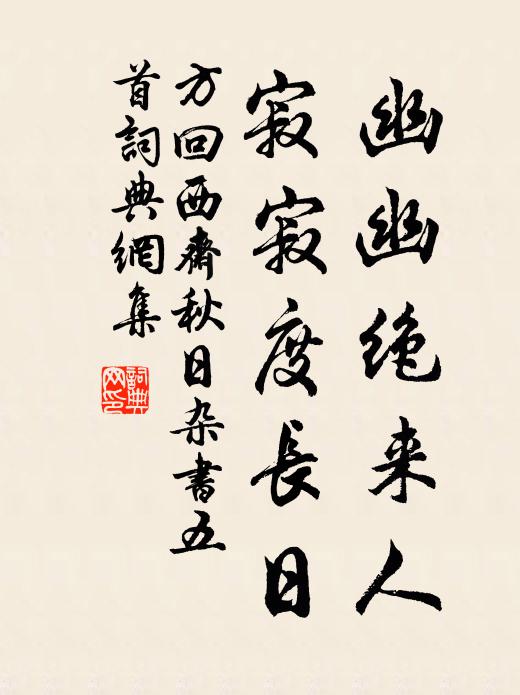 幽幽絶来人
寂寂度長日
方回西齋秋日杂書五
首詞典網集
詞典
网印